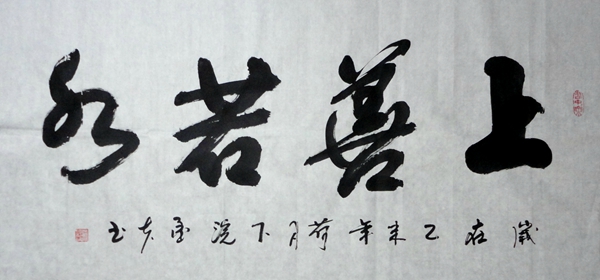 上善若水
歲在乙未年荷月下浣